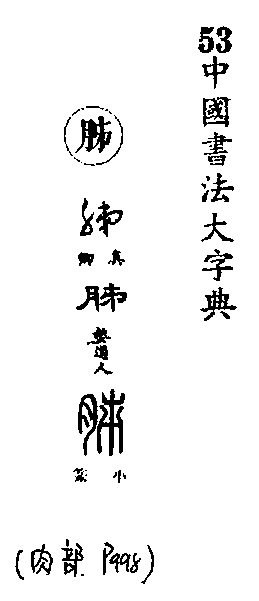 53中國書法大字典
肺
肺
真卿
肺
道人
肺
小篆
(肉部 P998)